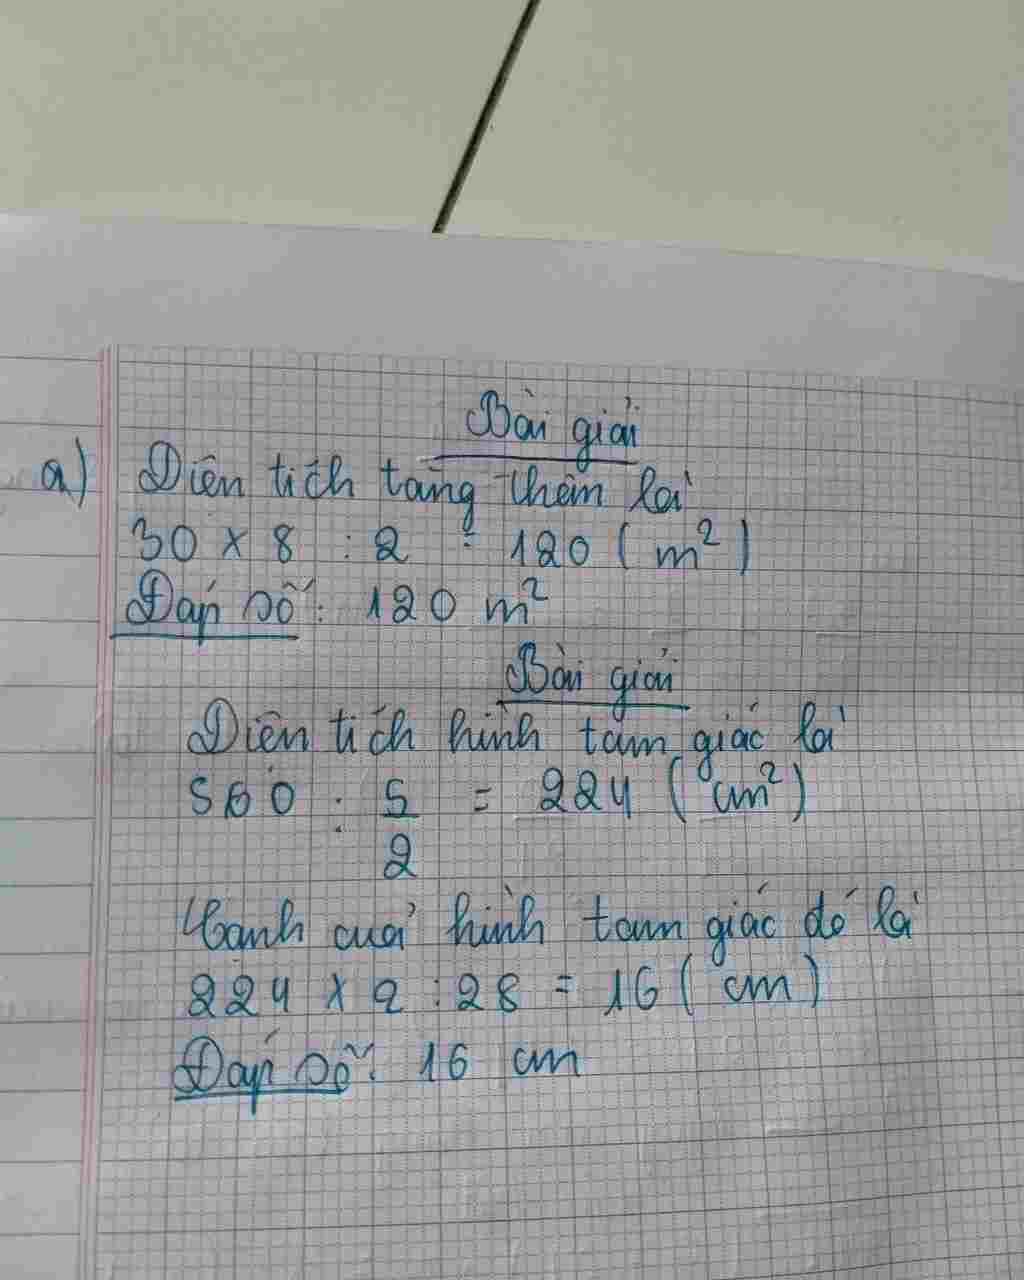 Bài giải
a) Diên tích tăng thêm là
30 x 8 : 2 = 120 ( m² )
Đáp số : 120 m²
Bài giải
Diên tích hình tam giác là
560 : 5/2 = 224 ( cm² )
Canh của hình tam giác đó là
224 x 2 : 28 = 16 ( cm )
Đáp số : 16 cm